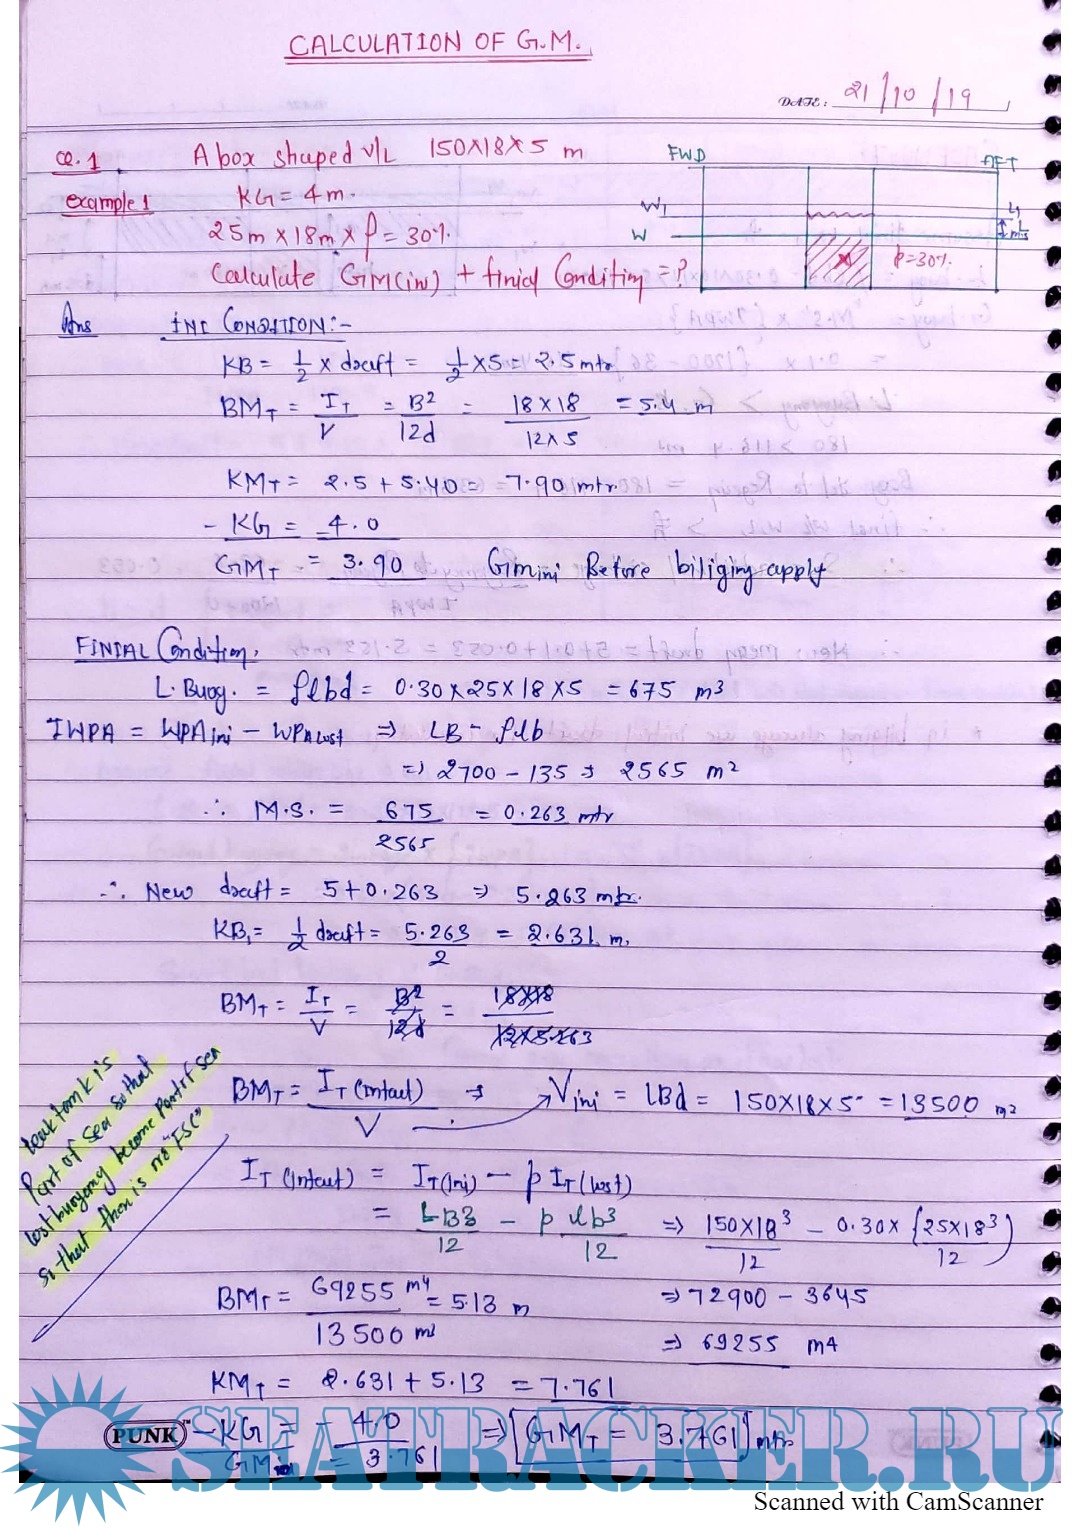 CALCULATION OF G.M.
DATE: 21/10/19
Q.1 A box shaped v/L 150×18×5 m
example 1 KG = 4 m.
25m × 18m × P = 30%.
Calculate GM(ini) + finial Condition = ?
FWD AFT
W1 L1
W L
m.s
P=30%.
Ans INI CONDITION:-
KB = 1/2 × draft = 1/2 × 5 = 2.5 mtr
BMT = IT/V = B²/12d = 18×18/12×5 = 5.4 m
KMT = 2.5 + 5.40 = 7.90 mtr.
- KG = -4.0
GMT = 3.90 GMini Before biliging apply
FINIAL Condition,
L. Buoy. = Plbd = 0.30×25×18×5 = 675 m³
IWPA = WPAini - WPALost ⇒ LB - Plb
⇒ 2700 - 135 ⇒ 2565 m²
∴ M.S. = 675/2565 = 0.263 mtr
∴ New draft = 5+0.263 ⇒ 5.263 mtr.
KB1 = 1/2 draft = 5.263/2 = 2.631 m.
BMT = IT/V = B²/12d = 18×18/12×5.263
BMT = IT (intact)/V ⇒ Vini = LBd = 150×18×5 = 13500 m²
leak tank is
Part of sea so that
lost buoyency become part of sea
so that then is no "FSC"
IT (intact) = IT(ini) - P IT(lost)
= LB3/12 - P lb³/12 ⇒ 150×18³/12 - 0.30× {25×18³/12)
BMT = 69255 m4/13500 m³ = 5.13 m ⇒ 72900 - 3645
⇒ 69255 m4
KMT = 2.631 + 5.13 = 7.761
- KG = - 4.0 ⇒ [GMT = 3.761] mtr.
GM = 3.761
PUNK™
SEATRACKER.RU
Scanned with CamScanner